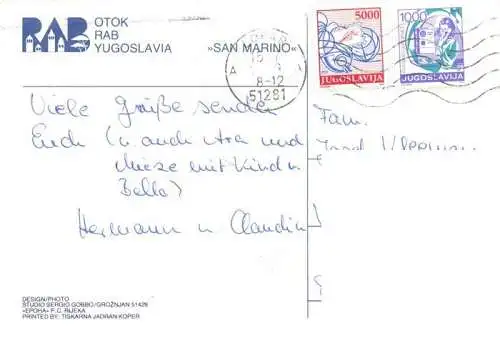 RAB
OTOK
RAB
YUGOSLAVIA
»SAN MARINO«
8-12
51281
A
5000
JUGOSLAVIJA
1000
JUGOSLAVIJA
Viele Grüße senden
Euch (u. auch Ara und
Mieze mit Kind u.
Bella)
Hermann u. Claudia
Fam.
DESIGN/PHOTO
STUDIO SERGIO GOBBO/GROŽNJAN 51429
»EPOHA« F.C. RIJEKA
PRINTED BY: TISKARNA JADRAN KOPER